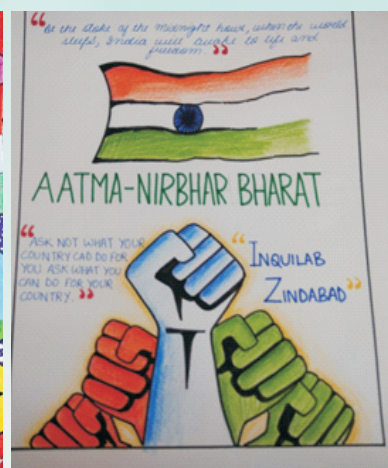 "At the stoke of the midnight hour, when the world
sleeps, India will awake to life and
freedom."
AATMA-NIRBHAR BHARAT
"ASK NOT WHAT YOUR
COUNTRY CAD DO FOR
YOU ASK WHAT YOU
CAN DO FOR YOUR
COUNTRY."
"INQUILAB
ZINDABAD"